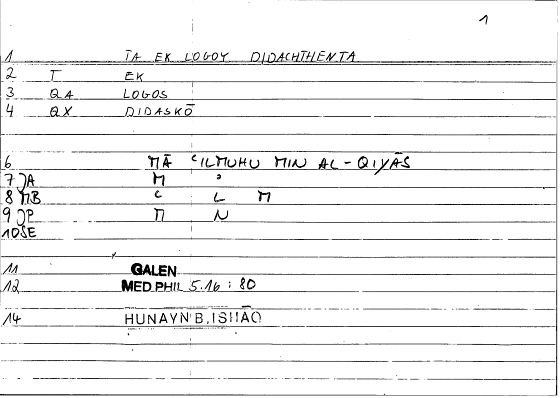 1
1 TA EK LOGOY DIDACHTHENTA
2 T EK
3 QA LOGOS
4 QX DIDASKŌ
6 MĀ ʿILMUHU MIN AL-QIYĀS
7 JA M ʾ
8 MB ʿ L M
9 JP M N
10 SE
11 GALEN
12 MED PHIL 5.16 : 80
14 HUNAYN B. ISḤĀQ